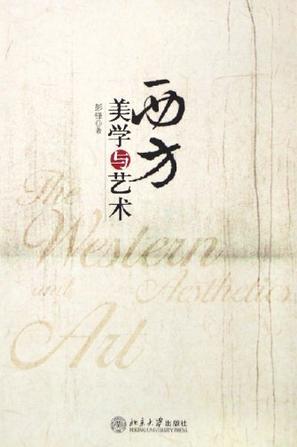 西方
美学与艺术
彭锋 著
The
Western
and Aesthetics
Art
北京大学出版社
PEKING UNIVERSITY PRESS